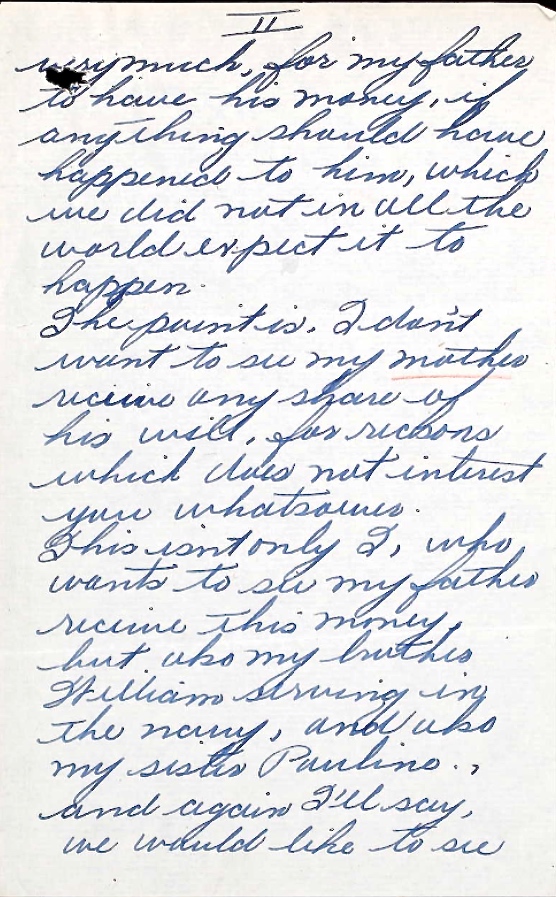 II
very much, for my father
to have his money, if
anything should have
happened to him, which
we did not in all the
world expect it to
happen.
The point is, I don't
want to see my mother
receive any share of
his will, for reasons
which does not interest
you whatsoever.
This isn't only I, who
wants to see my father
receive this money,
but also my brother
William serving in
the navy, and also
my sister Pauline.,
and again I'll say,
we would like to see